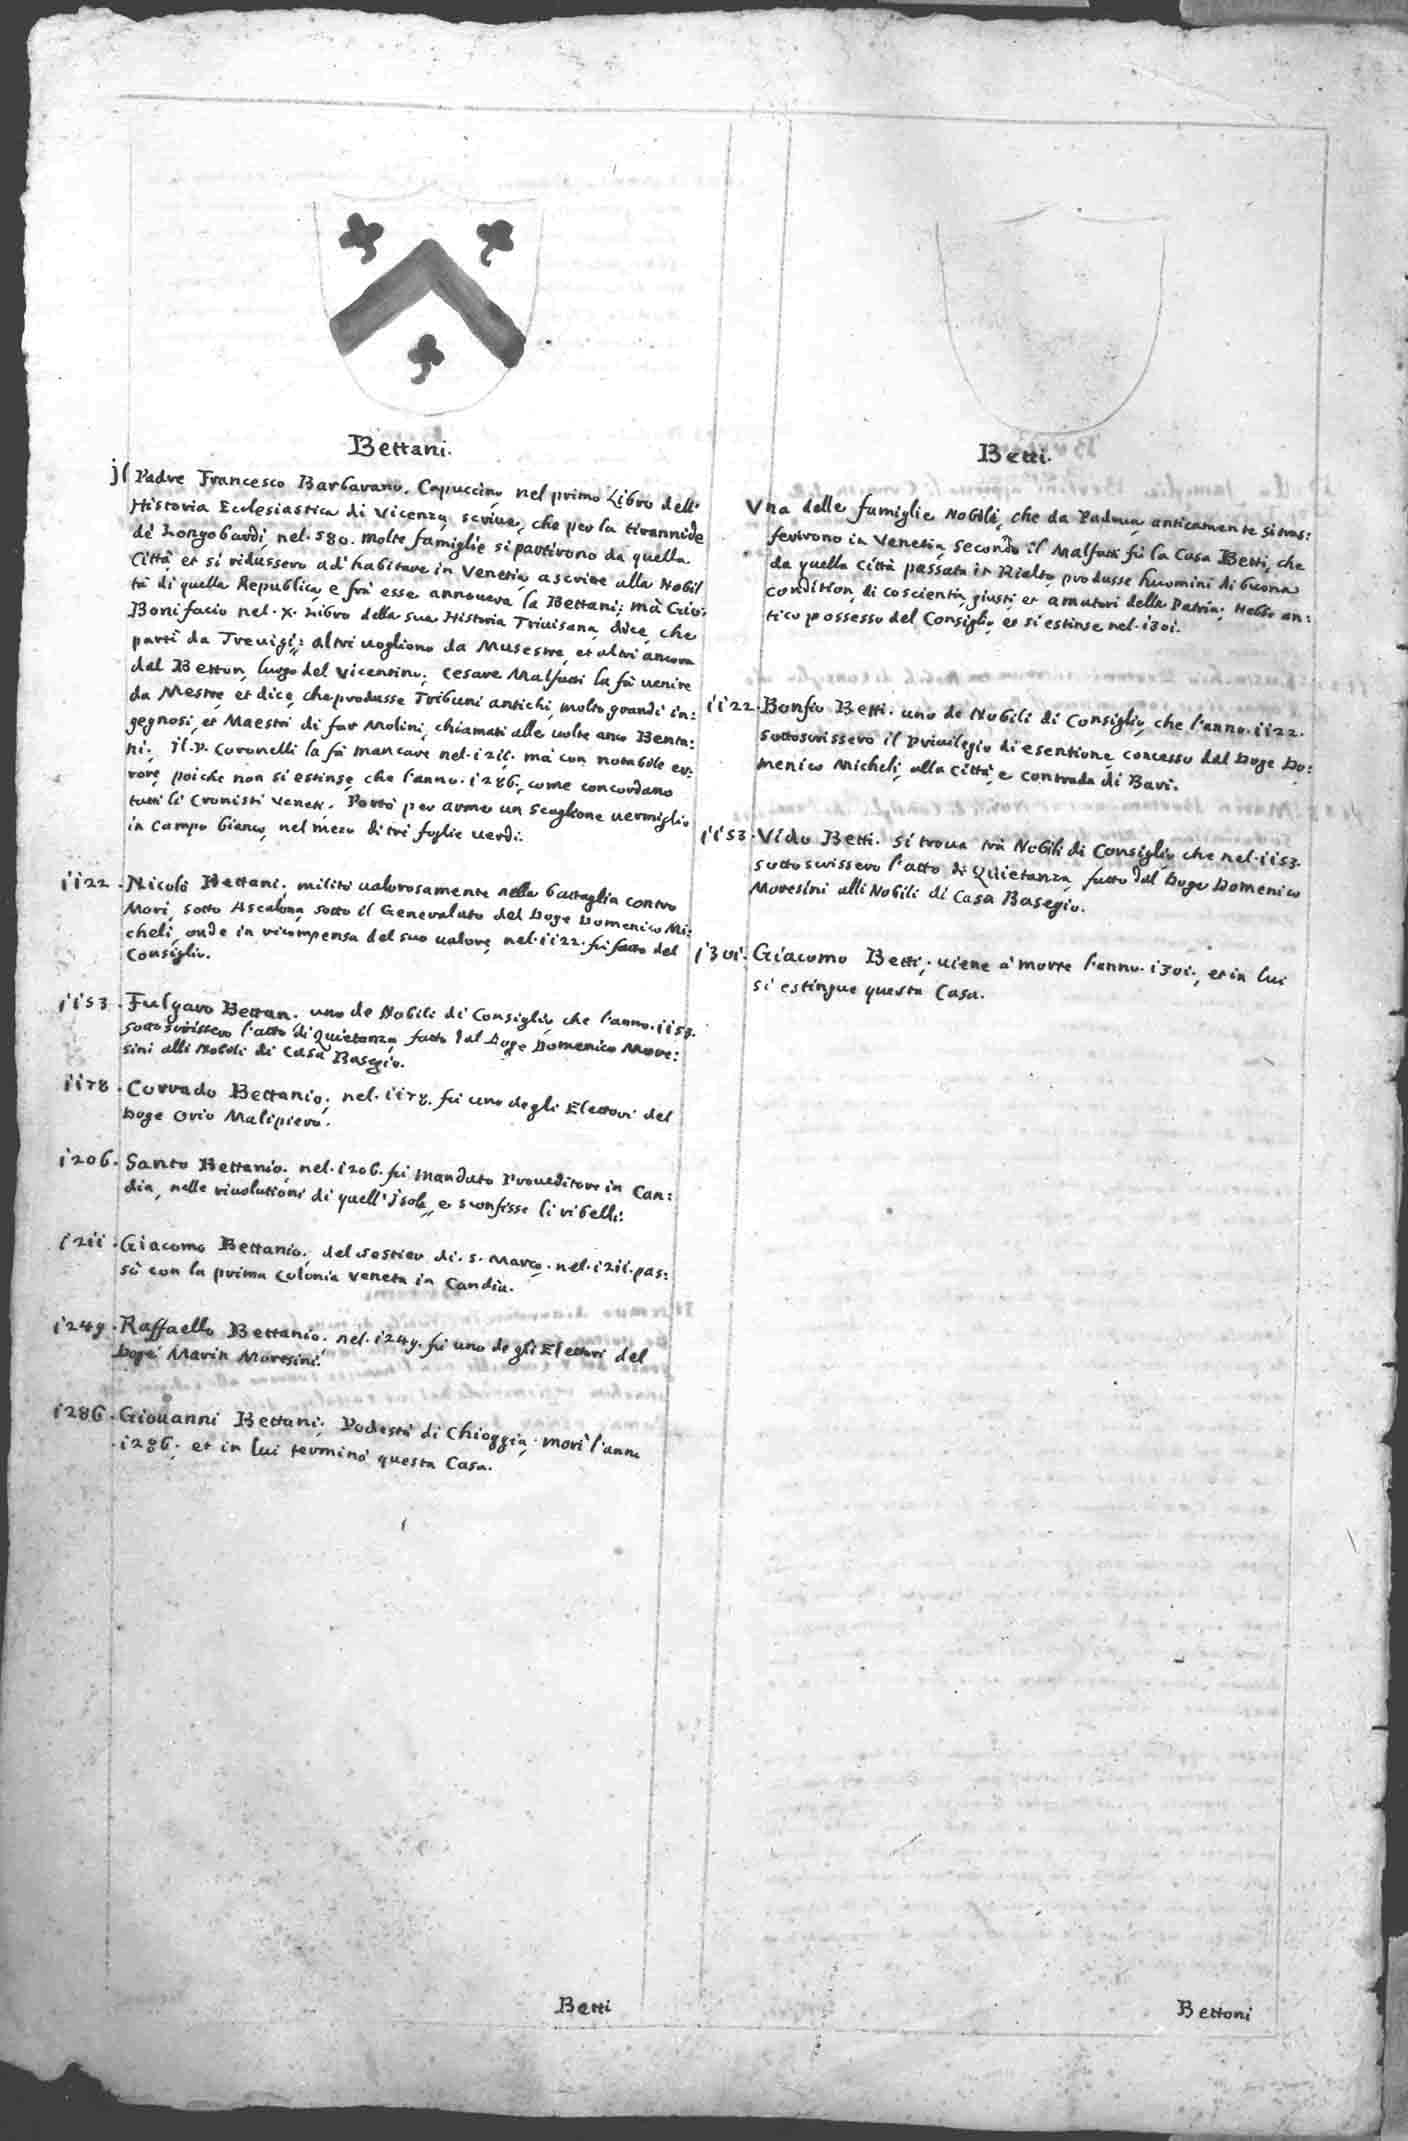 Bettani.
jl Padre Francesco Barbarano, Capuccino, nel primo Libro dell'
Historia Ecclesiastica di Vicenza, scriue, che per la tirannide
de' Longobardi, nel. 580. molte famiglie si partirono da quella
Città, et si ridussero ad' habitare in Venetia, ascritte alla Nobil
tà di quella Republica, e frà esse annouera la Bettani; mà Gio:
Bonifacio nel. X. Libro della sua Historia Triuisana, dice, che
partì da Treuigi; altri uogliono da Musestre, et altri ancora
dal Betton, luogo del Vicentino; Cesare Malfatti la fà uenire
da Mestre, et dice, che produsse Tribuni antichi, molto grandi in:
gegnosi, et Maestri di far Molini, chiamati alle uolte anco Benta:
ni; jl. P. Coronelli la fà mancare nel. i2ii. mà con notabile er:
rore, poiche non si estinse, che l'anno. i286. come concordano
tutti li Cronisti Veneti. Portò per arma un Scaglione uermiglio
in Campo bianco, nel mezo di trè foglie uerdi:
ii22. Nicolò Bettani, militò ualorosamente nella battaglia contro
Mori, sotto Ascalona, sotto il Generalato del Doge Domenico Mi:
cheli, onde in ricompensa del suo ualore, nel. ii22. fù fatto del
Consiglio.
ii53. Fulgaro Bettan. uno de Nobili di Consiglio, che l'anno. ii53.
sottoscrissero l'atto di Quietanza, fatto dal Doge Domenico More:
sini alli Nobili di Casa Basegio.
ii78. Corrado Bettanio, nel. ii78. fù uno degli Elettori del
Doge Orio Malipiero.
i206. Santo Bettanio, nel. i206. fù mandato Proueditore in Can:
dia, nelle riuolutioni di quell' jsola, e sconfisse li ribelli:
i2ii. Giacomo Bettanio, del sestier di. S. Marco. nel. i2ii. pas:
sò con la prima Colonia Veneta in Candia.
i249. Raffaello Bettanio. nel. i249. fù uno degli Elettori del
Doge Marin Moresini.
i286. Giouanni Bettani, Podestà di Chioggia, morì l'anno
.i286. et in lui terminò questa Casa.
Betti
Betti.
Vna delle famiglie Nobili, che da Padoua anticamente si tras:
ferirono in Venetia, secondo il Malfatti fù la Casa Betti, che
da quella città passata in Rialto, produsse huomini di buona
conditione, di coscientia, giusti et amatori della Patria; Hebbe an:
tico possesso del Consiglio, et si estinse nel. i30i.
ii22. Bonfio Betti. uno de Nobili di Consiglio, che l'anno. ii22.
sottoscrissero il Priuilegio di esentione, concesso dal Doge Do:
menico Micheli, alla città, e contrada di Bari.
ii53. Vido Betti. si troua trà Nobili di Consiglio che nel. ii53.
sottoscrissero l'atto di Quietanza, fatto dal Doge Domenico
Moresini alli Nobili di Casa Basegio.
i30i. Giacomo Betti, uiene à morte l'anno. i30i., et in lui
si estingue questa Casa.
Bettoni